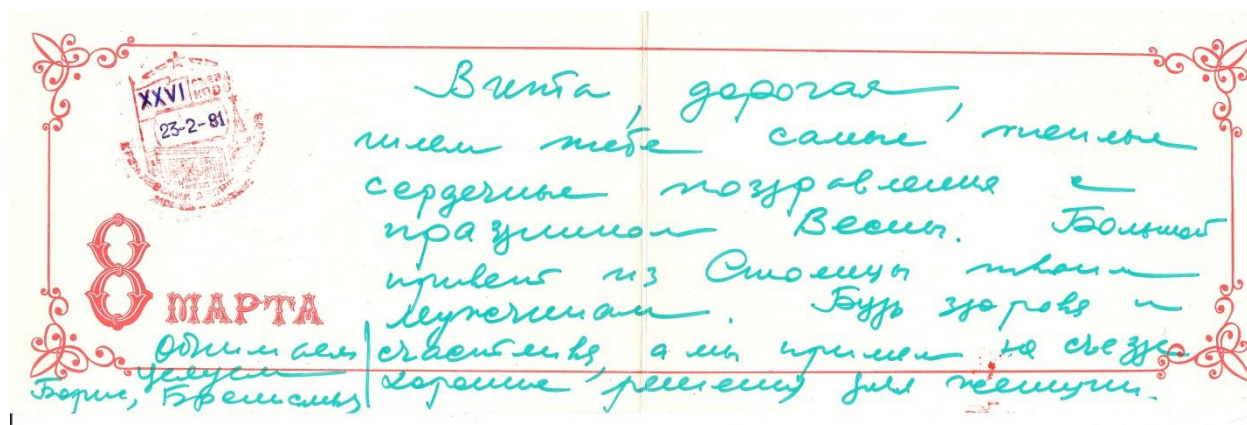 XXVI СЪЕЗД КПСС
23-2-81
8 МАРТА
Вита, дорогая,
шлем тебе самые теплые
сердечные поздравления с
праздником Весны. Большой
привет из Столицы твоим
мужчинам. Будь здорова и
счастлива, а мы примем на съезде
хорошие решения для женщин.
Обнимаем
целуем
Борис,